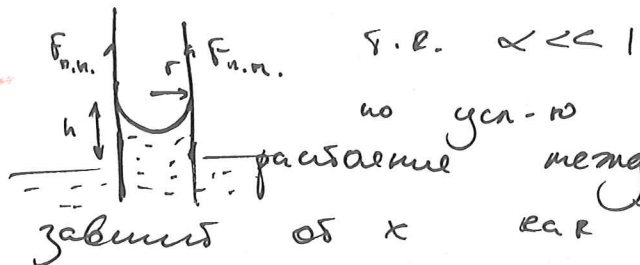 Fп.н. r Fп.н. т.к. α << 1
h по усл-ю
расстояние между
зависит от x как